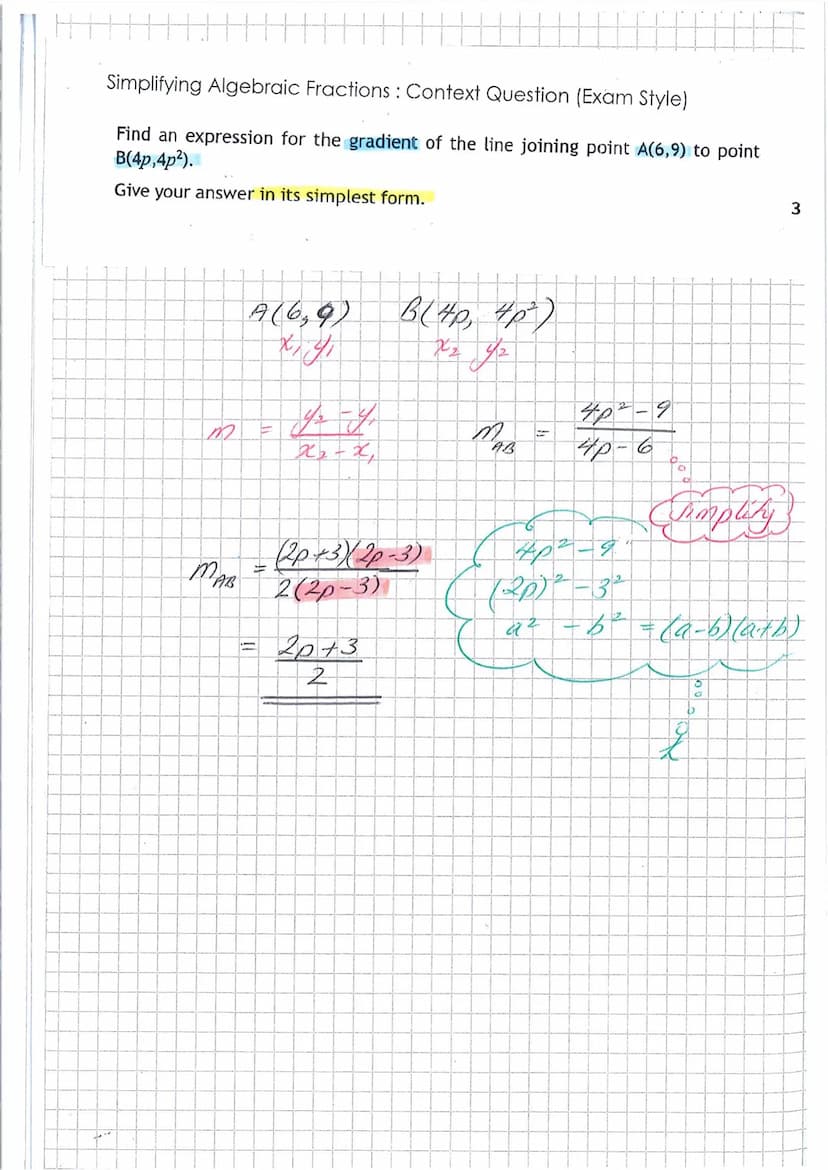 Simplifying Algebraic Fractions : Context Question (Exam Style)
Find an expression for the gradient of the line joining point A(6,9) to point
B(4p,4p²).
Give your answer in its simplest form.
3
A(6,9) B(4p, 4p²)
x₁ y₁ x₂ y₂
m = (y₂ - y₁)/(x₂ - x₁)
m_AB = (4p² - 9)/(4p - 6)
Simplify
m_AB = (2p+3)(2p-3)/2(2p-3)
= (2p+3)/2
4p² - 9
(2p)² - 3²
a² - b² = (a-b)(a+b)